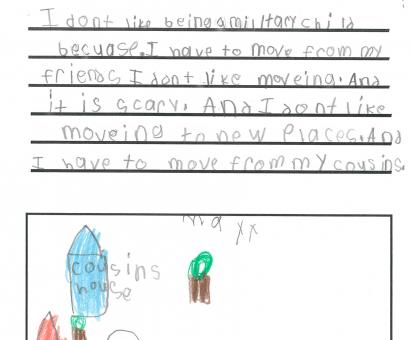 I dont like being a military child
becuase. I have to move from my
friends I dont like moveing. And
it is scary. And I dont like
moveing to new Places. And
I have to move from my cousins.
cousins
house